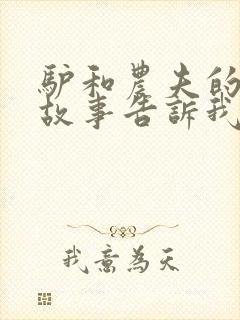 驴和農夫的
故事告訴我
我意為天